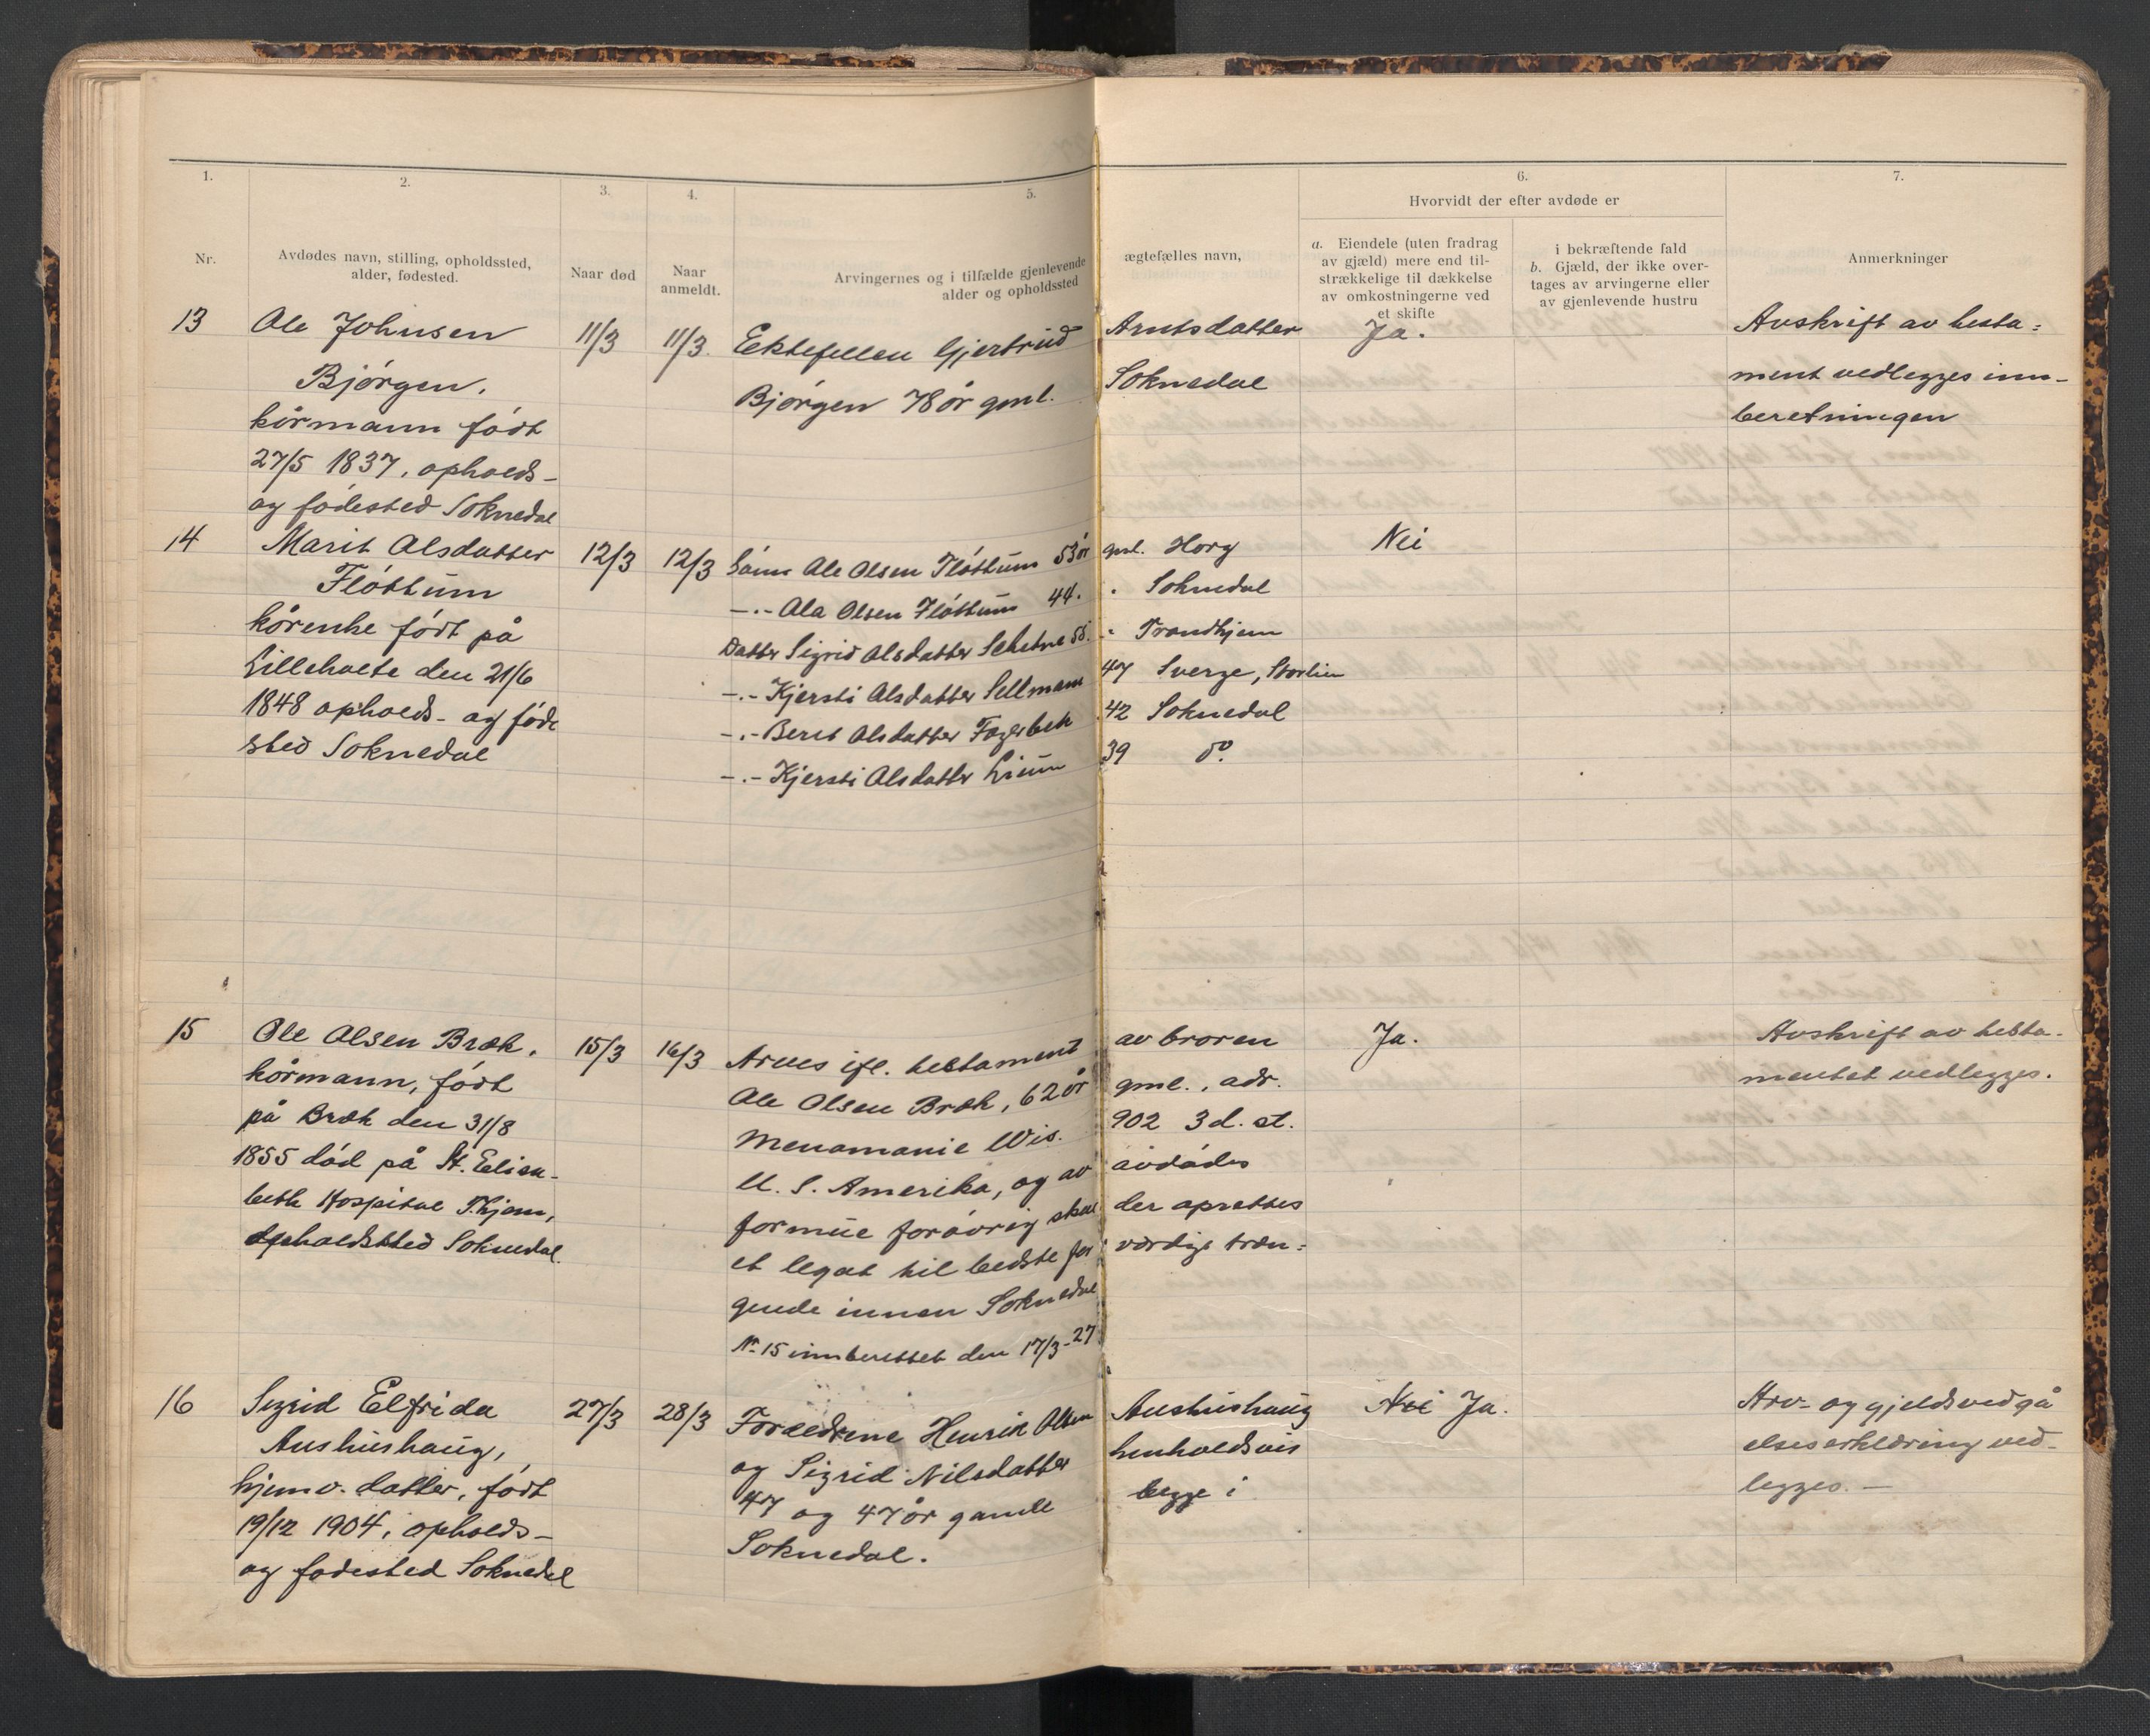 1.
2.
3.
4.
5.
6.
7.
Hvorvidt der efter avdøde er
Nr.
Avdødes navn, stilling, opholdssted,
alder, fødested.
Naar død
Naar
anmeldt.
Arvingernes og i tilfælde gjenlevende ægtefælles navn,
alder og opholdssted
a. Eiendele (uten fradrag
av gjæld) mere end til-
strækkelige til dækkelse
av omkostningerne ved
et skifte
i bekræftende fald
b. Gjæld, der ikke over-
tages av arvingerne eller
av gjenlevende hustru
Anmerkninger
13 Ole Johnsen 11/3 11/3. Ektefellen Gjertrud Arntsdatter Ja. Avskrift av testa-
Bjørgen, Bjørgen 78 år gml. Soknedal ment vedlegges inn-
kårmann født beretningen
27/5 1837, opholds-
og fødested Soknedal
14 Marit Olsdatter 12/3 12/3 Sønn Ole Olsen Fløttum 53 år gml. Horg Nei
Fløttum -.- Ola Olsen Fløttum 44. " Soknedal
kårenke født på Datter Sigrid Olsdatter 55. " Trondhjem
Lillehaete den 21/6 -.- Kjersti Olsdatter Sellmann 47 Sverge, Storlien
1848 opholds- og føde -.- Berit Olsdatter Fagerbek 42 Soknedal
sted Soknedal -.- Kjersti Olsdatter Lium 39 do.
15 Ole Olsen Bræk, 15/3 16/3 Arves ifl. testament av broren Ja. Avskrift av testa-
kårmann, født Ole Olsen Bræk, 62 år gml., adr. mentet vedlegges.
på Bræk den 31/8 Menomonie Wis. 902 3 d. st.
1855 død på St. Elisa- U. S. Amerika, og av avdødes
beth Hospital T.hjem, formue forøvrig skal der oprettes
opholdssted Soknedal. et legat til bedste for værdige træn-
gende innen Soknedal
Nr. 15 innberettet den 17/3-27
16 Sigrid Elfrida 27/3 28/3 Foreldrene Henrik Olsen Aushushaug Nei Ja. Arv- og gjeldsvedgå
Aushushaug, og Sigrid Nilsdatter henholdsvis elseserklering ved-
hjemv. datter, født 47 og 47 år gamle begge i legges. -
19/12 1904, opholds- Soknedal.
og fødested Soknedal